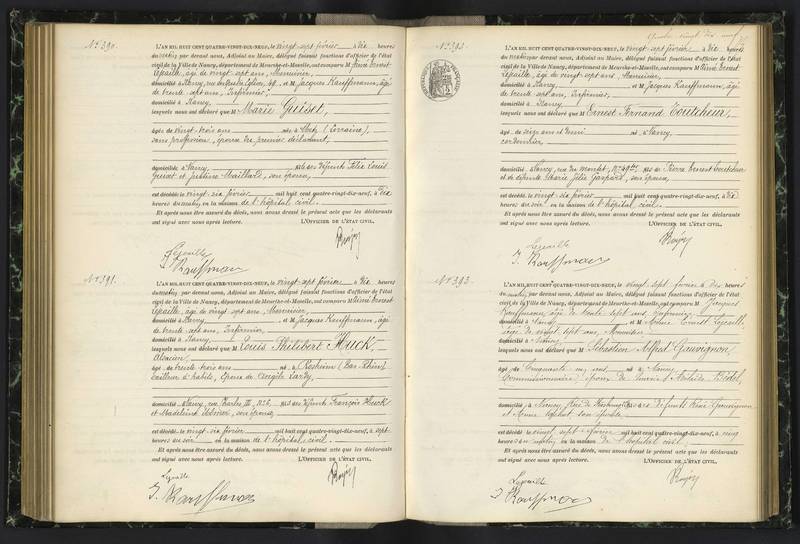 N° 390.
L'AN MIL HUIT CENT QUATRE-VINGT-DIX-NEUF, le vingt-sept février à dix heures
du matin par devant nous, Adjoint au Maire, délégué faisant fonctions d'officier de l'état
civil de la Ville de Nancy, département de Meurthe-et-Moselle, ont comparu M Ernest
Lepaille, âgé de vingt sept ans, Menuisier,
domicilié à Nancy, et M Jacques Kauffmann, âgé
de trente sept ans, Infirmier,
domicilié à Nancy,
lesquels nous ont déclaré que M Marie Guéset,
âgée de vingt-trois ans née à Metz (Lorraine),
sans profession, épouse du premier déclarant,
domiciliée à Nancy, fille des défunts Félix Louis
et Justine Maillard, son épouse,
est décédée le vingt-six février mil huit cent quatre-vingt-dix-neuf, à dix
heures du matin en la maison de l'hôpital civil.
Et après nous être assuré du décès, nous avons dressé le présent acte que les déclarants
ont signé avec nous après lecture. L'OFFICIER DE L'ÉTAT CIVIL.
Lepaille
J. Kauffman
N° 391.
L'AN MIL HUIT CENT QUATRE-VINGT-DIX-NEUF, le vingt-sept février à dix heures
du matin, par devant nous, Adjoint au Maire, délégué faisant fonctions d'officier de l'état
civil de la Ville de Nancy, département de Meurthe-et-Moselle, ont comparu M Ernest
Lepaille, âgé de vingt sept ans, Menuisier,
domicilié à Nancy, et M Jacques Kauffmann, âgé
de trente sept ans, Infirmier,
domicilié à Nancy,
lesquels nous ont déclaré que M Louis Philibert Huck,
Alsacien,
âgé de trente ans né à Rosheim (Bas Rhin)
tailleur d'habits, époux de Angèle Lardy,
domicilié à Nancy, rue Charles III, fils des défunts François Huck
et Madeleine son épouse,
est décédé le vingt-six février mil huit cent quatre-vingt-dix-neuf, à sept
heures du soir en la maison de l'hôpital civil.
Et après nous être assuré du décès, nous avons dressé le présent acte que les déclarants
ont signé avec nous après lecture. L'OFFICIER DE L'ÉTAT CIVIL.
Lepaille
J. Kauffman
quatre vingt dix neuf
N° 392.
L'AN MIL HUIT CENT QUATRE-VINGT-DIX-NEUF, le vingt-sept février à dix heures
du matin par devant nous, Adjoint au Maire, délégué faisant fonctions d'officier de l'état
civil de la Ville de Nancy, département de Meurthe-et-Moselle, ont comparu M Ernest
Lepaille, âgé de vingt sept ans, Menuisier,
domicilié à Nancy, et M Jacques Kauffmann, âgé
de trente sept ans, Infirmier,
domicilié à Nancy,
lesquels nous ont déclaré que M Ernest Fernand Toutcheur,
âgé de seize ans et demi né à Nancy,
cordonnier,
domicilié à Nancy, rue du Montet, fils de Pierre Ernest Toutcheur
et de défunte Marie Julie Gaspard, son épouse,
est décédé le vingt-six février mil huit cent quatre-vingt-dix-neuf, à dix
heures du soir en la maison de l'hôpital civil.
Et après nous être assuré du décès, nous avons dressé le présent acte que les déclarants
ont signé avec nous après lecture. L'OFFICIER DE L'ÉTAT CIVIL.
Lepaille
J. Kauffman
N° 393.
L'AN MIL HUIT CENT QUATRE-VINGT-DIX-NEUF, le vingt sept février à dix heures
du matin, par devant nous, Adjoint au Maire, délégué faisant fonctions d'officier de l'état
civil de la Ville de Nancy, département de Meurthe-et-Moselle, ont comparu M Jacques
Kauffmann, âgé de trente sept ans, Infirmier,
domicilié à Nancy et M Ernest Lepaille,
âgé de vingt sept ans, Menuisier
domicilié à Nancy,
lesquels nous ont déclaré que M Sébastien Alfred Gauvignon,
âgé de Cinquante ans né à Nancy
Commissionnaire, époux de Bédel,
domicilié à Nancy, fils des défunts Gauvignon
et son épouse
est décédé le vingt sept février mil huit cent quatre-vingt-dix-neuf, à cinq
heures du matin en la maison de l'hôpital civil,
Et après nous être assuré du décès, nous avons dressé le présent acte que les déclarants
ont signé avec nous après lecture. L'OFFICIER DE L'ÉTAT CIVIL.
Lepaille
J. Kauffman